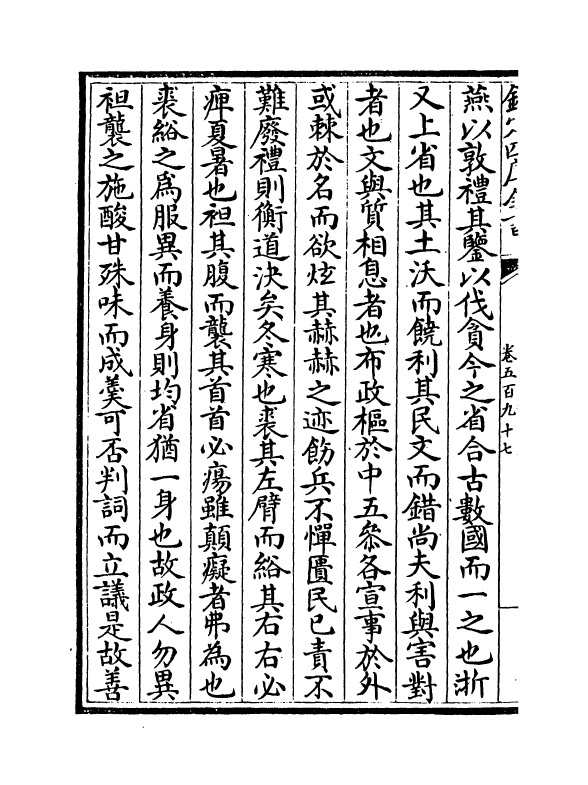 欽定四庫全書
卷五百九十七
燕以敦禮其鑒以伐貪今之省合古數國而一之也浙
又上省也其土沃而饒利其民文而錯尚夫利與害對
者也文與質相息者也布政樞於中五叅各宣事於外
或棘於名而欲炫其赫赫之迹飭兵不憚匱民已責不
難廢禮則衡道決矣冬寒也裘其左臂而綌其右右必
痺夏暑也袒其腹而襲其首首必瘍雖顛癡者弗為也
裘綌之為服異而養身則均省猶一身也故政人勿異
袒襲之施酸甘殊味而成羮可否判詞而立議是故善